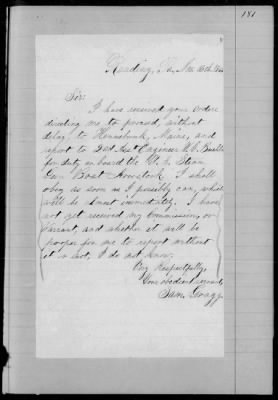 181
Reading, Pa, Nov 16th
Sir:
I have received your orders
directing me to proceed, without
delay, to Kennebunk, Maine, and
report to 2nd Asst Engineer
for duty on board the U. S. Steam
Gun Boat Aroostook. I shall
obey as soon as I possibly can, which
will be almost immediately. I have
not yet received my Commission, or
Warrant, and whether it will be
proper for me to report without
it or not, I do not know.
Very Respectfully,
Your obedient servant,
Sam. Gragg